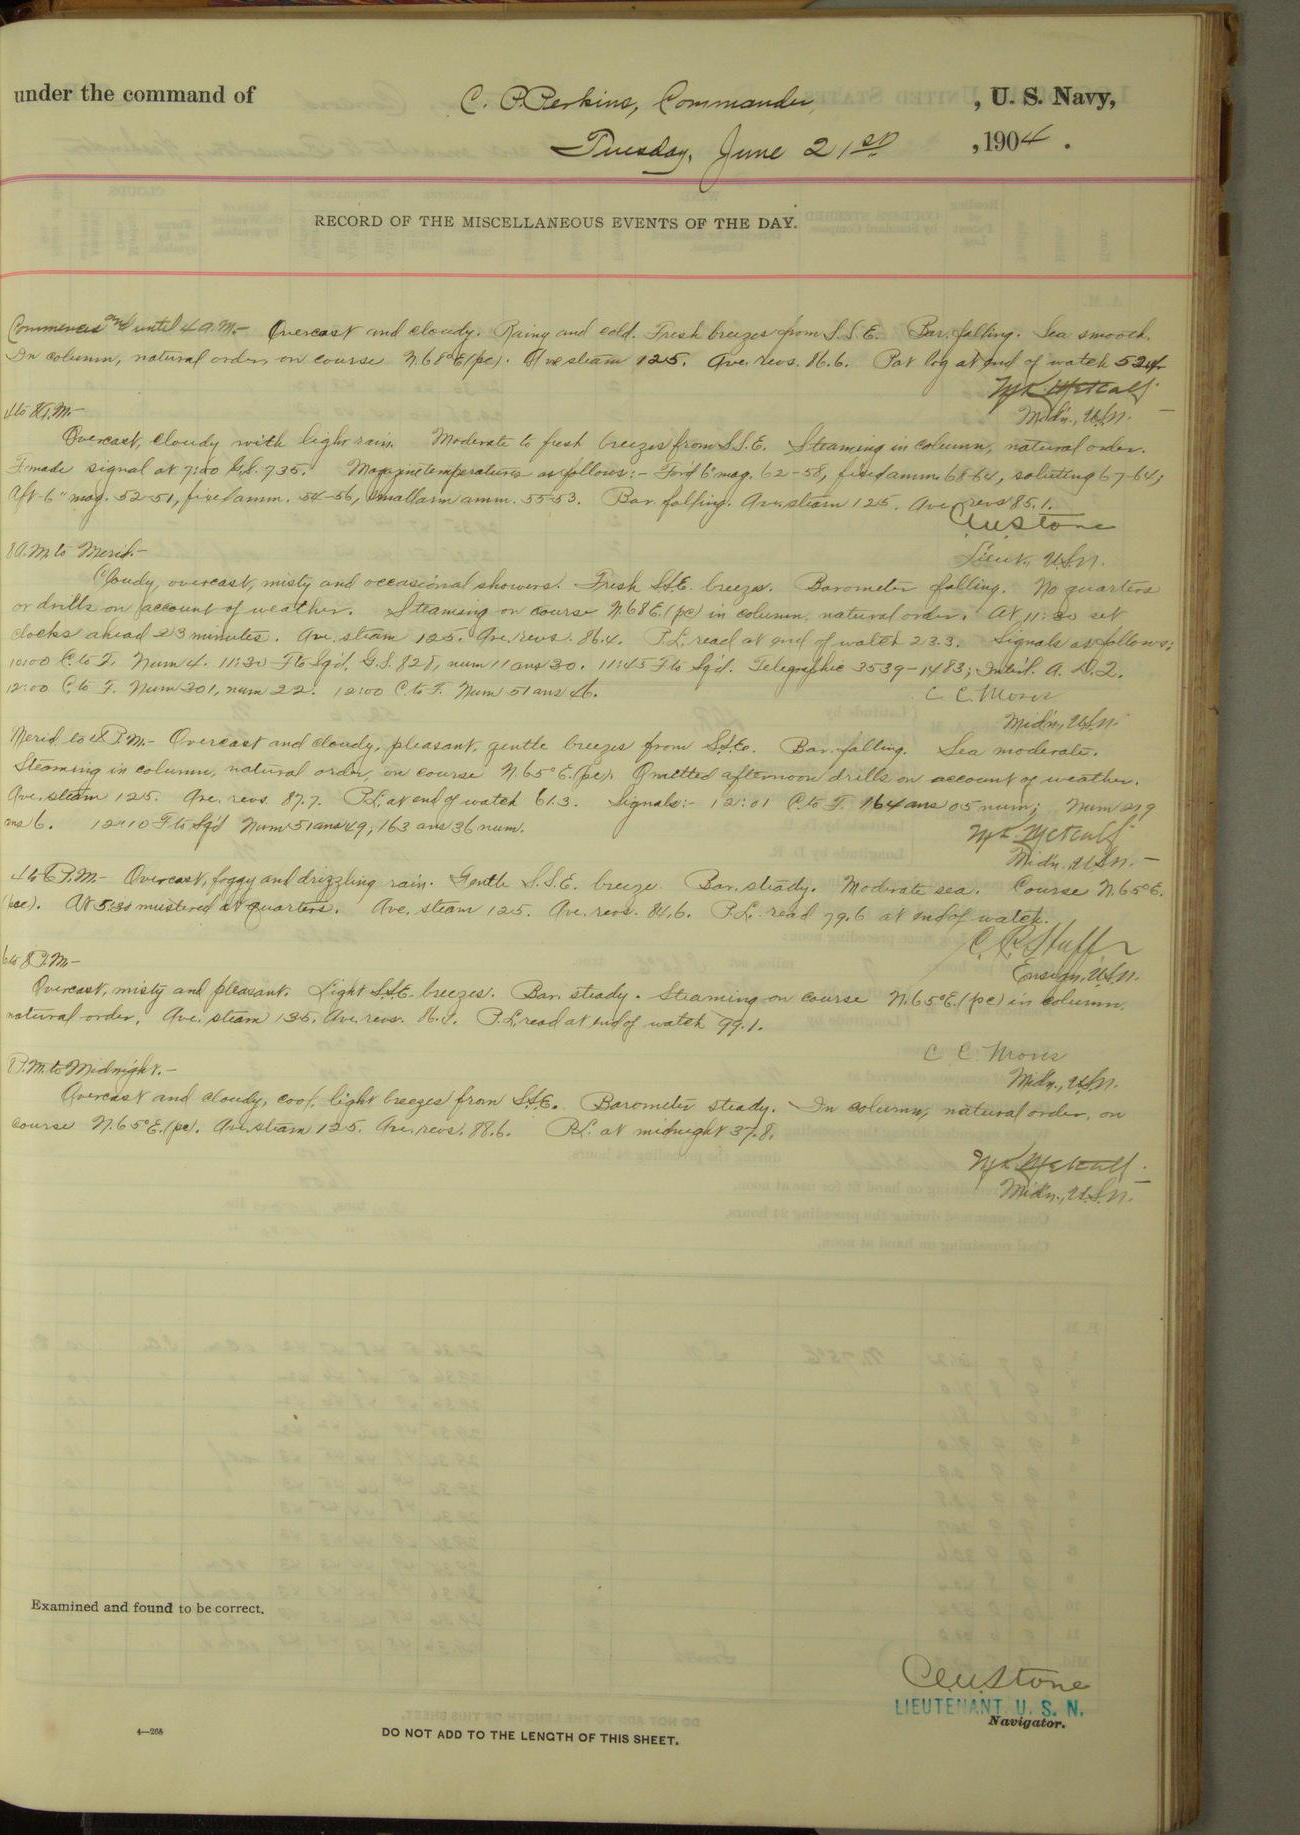 under the command of C. P. Perkins, Commander, U. S. Navy,
Tuesday, June 21st, 1904.
RECORD OF THE MISCELLANEOUS EVENTS OF THE DAY.
Commences and until 4 A.M.- Overcast and cloudy. Rainy and cold. Fresh breezes from S.S.E. Bar. falling. Sea smooth.
In column, natural order, on course N68°E(pc). Ave steam 125. Ave. revs. 86.6. Pat log at end of watch 52.4.
M.K. Metcalf
Midn., U.S.N.
4 to 8 A.M.-
Overcast, cloudy with light rain. Moderate to fresh breezes from S.S.E. Steaming in column, natural order.
F. made signal at 7:00 G.S. 735. Magazine temperatures as follows:- Ford 6" mag. 62-58, fixed amm. 68-64, saluting 67-64;
Aft 6" mag. 52-51, fixed amm. 54-56, small arm amm. 55-53. Bar. falling. Ave. steam 125. Ave revs 85.1.
C.U. Stone
Lieut., U.S.N.
8 A.M. to Merid.-
Cloudy, overcast, misty and occasional showers. Fresh S.S.E. breezes. Barometer falling. No quarters
or drills on account of weather. Steaming on course N68E(pc) in column, natural order. At 11:30 set
clocks ahead 23 minutes. Ave. steam 125. Ave. revs. 86.4. P.L. read at end of watch 23.3. Signals as follows:
10:00 C. to F. Num 4. 11:30 F to Sq'd. G.S. 828, num 11 ans 30. 11:45 F to Sq'd. Telegraphic 3539-1483; Int'l. A. D. 2.
12:00 C. to F. Num 301, num 22. 12:00 C. to F. Num 51 ans 46.
C. C. Moses
Midn., U.S.N.
Merid to 4 P.M.- Overcast and cloudy, pleasant, gentle breezes from S.S.E. Bar. falling. Sea moderate.
Steaming in column, natural order, on course N.65°E.(pc). Omitted afternoon drills on account of weather.
Ave. steam 125. Ave. revs. 87.7. P.L. at end of watch 61.3. Signals:- 12:01 C. to F. 164 ans 05 num; Num 219
ans 6. 12:10 F to Sq'd Num 51 ans 49; 163 ans 36 num.
M.K. Metcalf
Midn., U.S.N.-
4 to 6 P.M.- Overcast, foggy and drizzling rain. Gentle S.S.E. breeze. Bar. steady. Moderate sea. Course N.65°E.
(psc). At 5:30 mustered at quarters. Ave. steam 125. Ave. revs. 84.6. P.L. read 79.6 at end of watch.
Ensign, U.S.N.
6 to 8 P.M.-
Overcast, misty and pleasant. Light S.S.E. breezes. Bar. steady. Steaming on course N.65°E.(pc) in column,
natural order. Ave. steam 135. Ave. revs. P.L. read at end of watch 99.1.
C. C. Moses
Midn., U.S.N.
P.M. to Midnight.-
Overcast and cloudy, cool, light breezes from S.S.E. Barometer steady. In column, natural order, on
course N.65°E.(pc). Ave. steam 125. Ave. revs. 88.6. P.L. at midnight 37.8.
M.K. Metcalf
Midn., U.S.N.
Examined and found to be correct.
C.U. Stone
LIEUTENANT U. S. N.
Navigator.
4—268
DO NOT ADD TO THE LENGTH OF THIS SHEET.